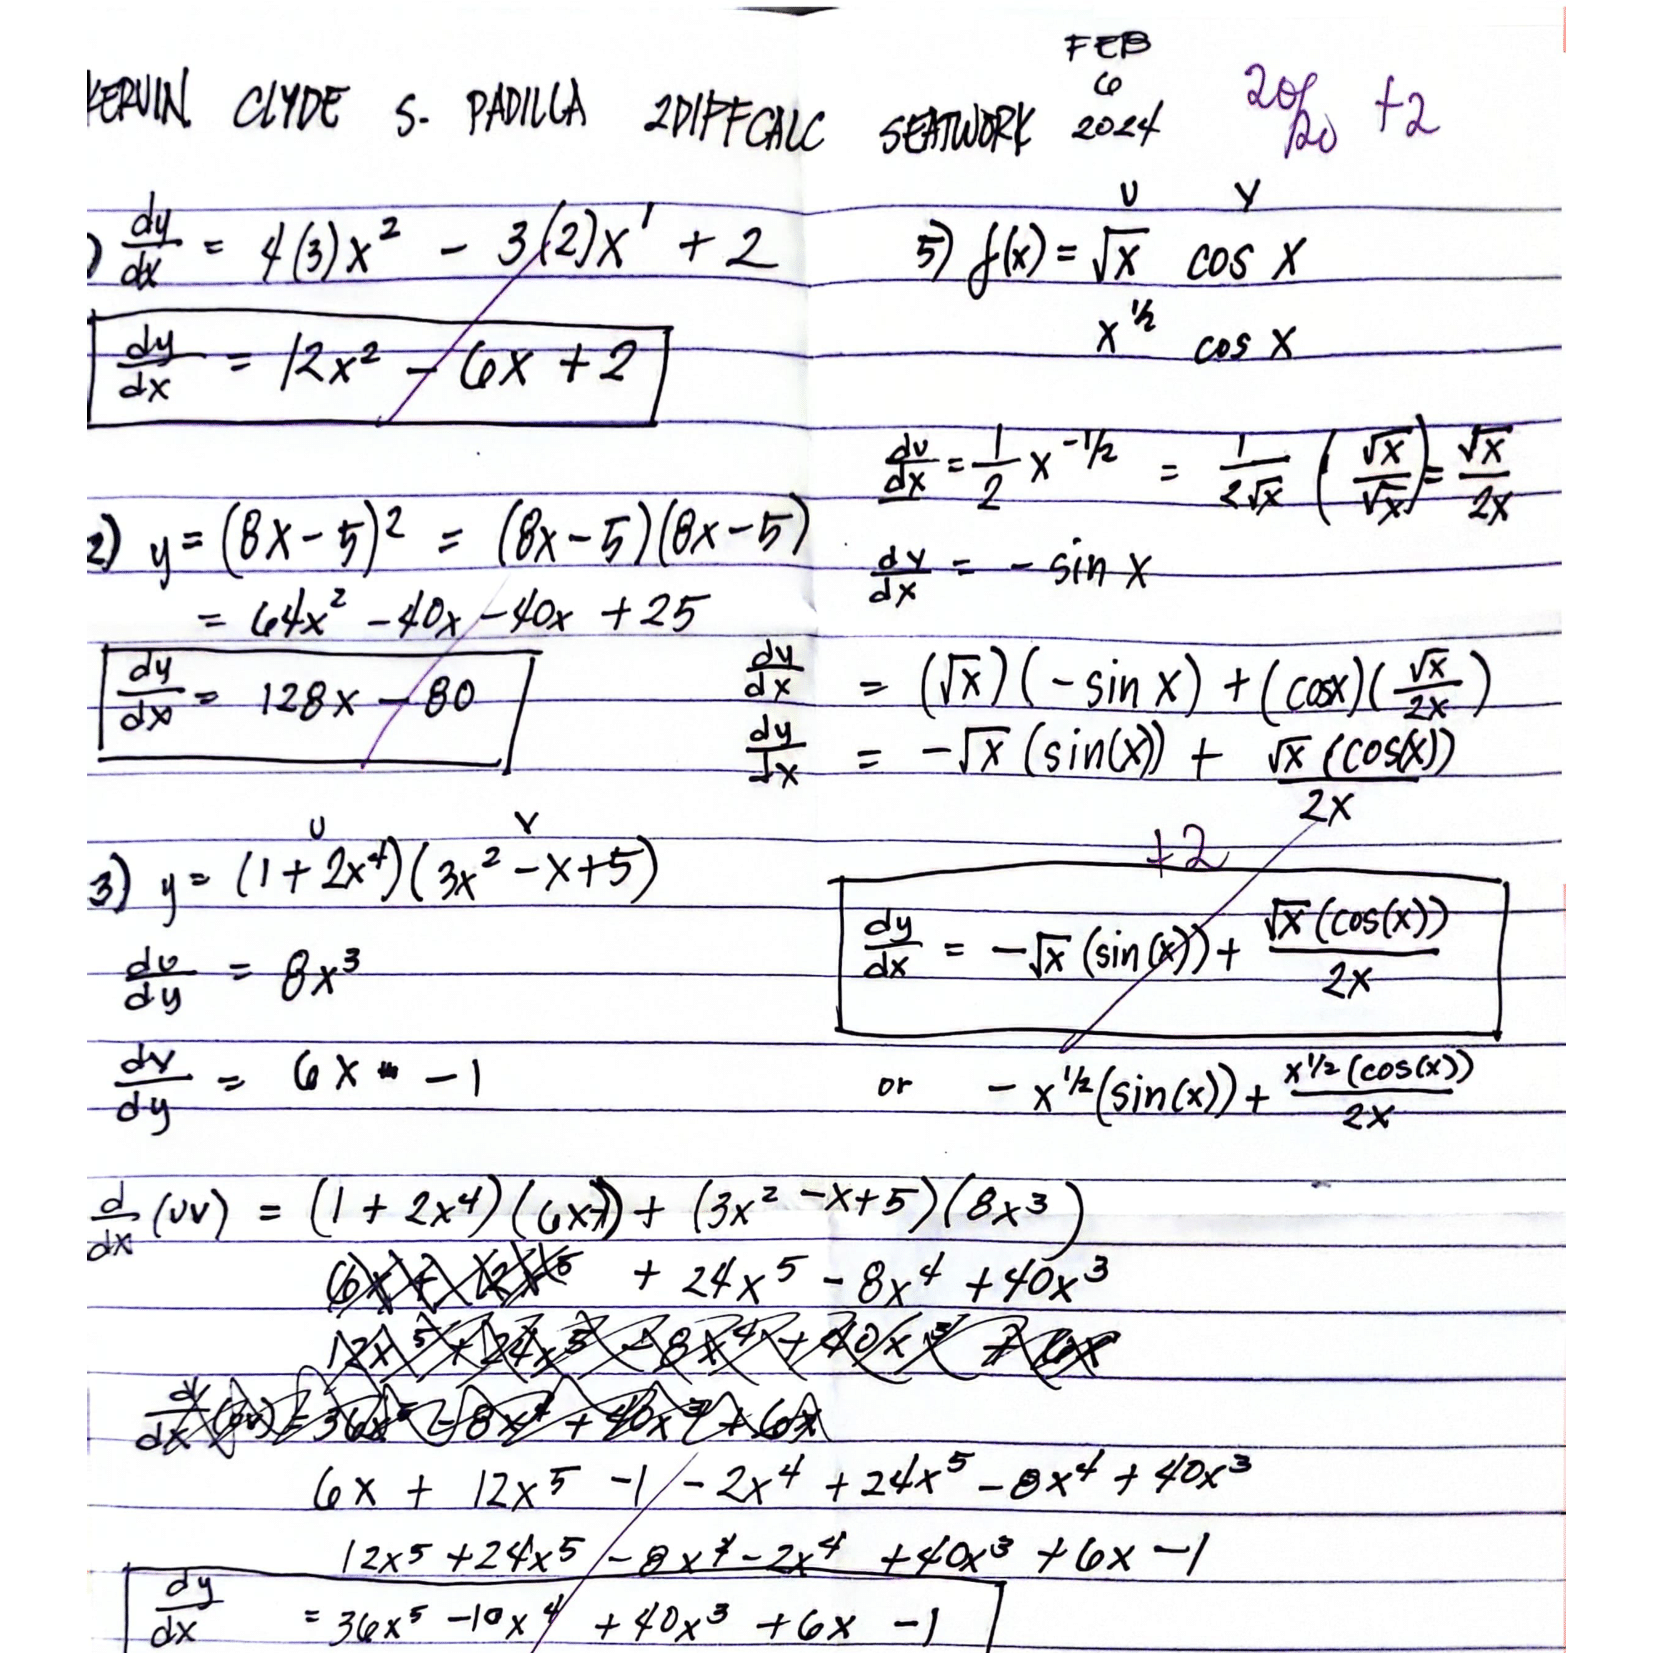 KERVIN CLYDE S. PADILLA 2DIFFCALC SEATWORK FEB 6 2024
20/20 +2
) dy/dx = 4(3)x² - 3(2)x¹ + 2
dy/dx = 12x² - 6x + 2
2) y = (8x-5)² = (8x-5)(8x-5)
= 64x² - 40x - 40x + 25
dy/dx = 128x - 80
U V
3) y = (1 + 2x⁴)(3x² - x + 5)
du/dy = 8x³
dv/dy = 6x - 1
d/dx (uv) = (1 + 2x⁴)(6x-1) + (3x² - x + 5)(8x³)
+ 24x⁵ - 8x⁴ + 40x³
6x + 12x⁵ - 1 - 2x⁴ + 24x⁵ - 8x⁴ + 40x³
12x⁵ + 24x⁵ - 8x⁴ - 2x⁴ + 40x³ + 6x - 1
dy/dx = 36x⁵ - 10x⁴ + 40x³ + 6x - 1
U V
5) f(x) = √x cos x
x^1/2 cos x
du/dx = 1/2 x^-1/2 = 1/2√x (√x/√x) = √x/2x
dv/dx = - sin x
dy/dx = (√x)(-sin x) + (cosx)(√x/2x)
dy/dx = -√x (sin(x)) + √x (cos(x))/2x
+2
dy/dx = -√x (sin(x)) + √x (cos(x))/2x
or - x^1/2 (sin(x)) + x^1/2 (cos(x))/2x